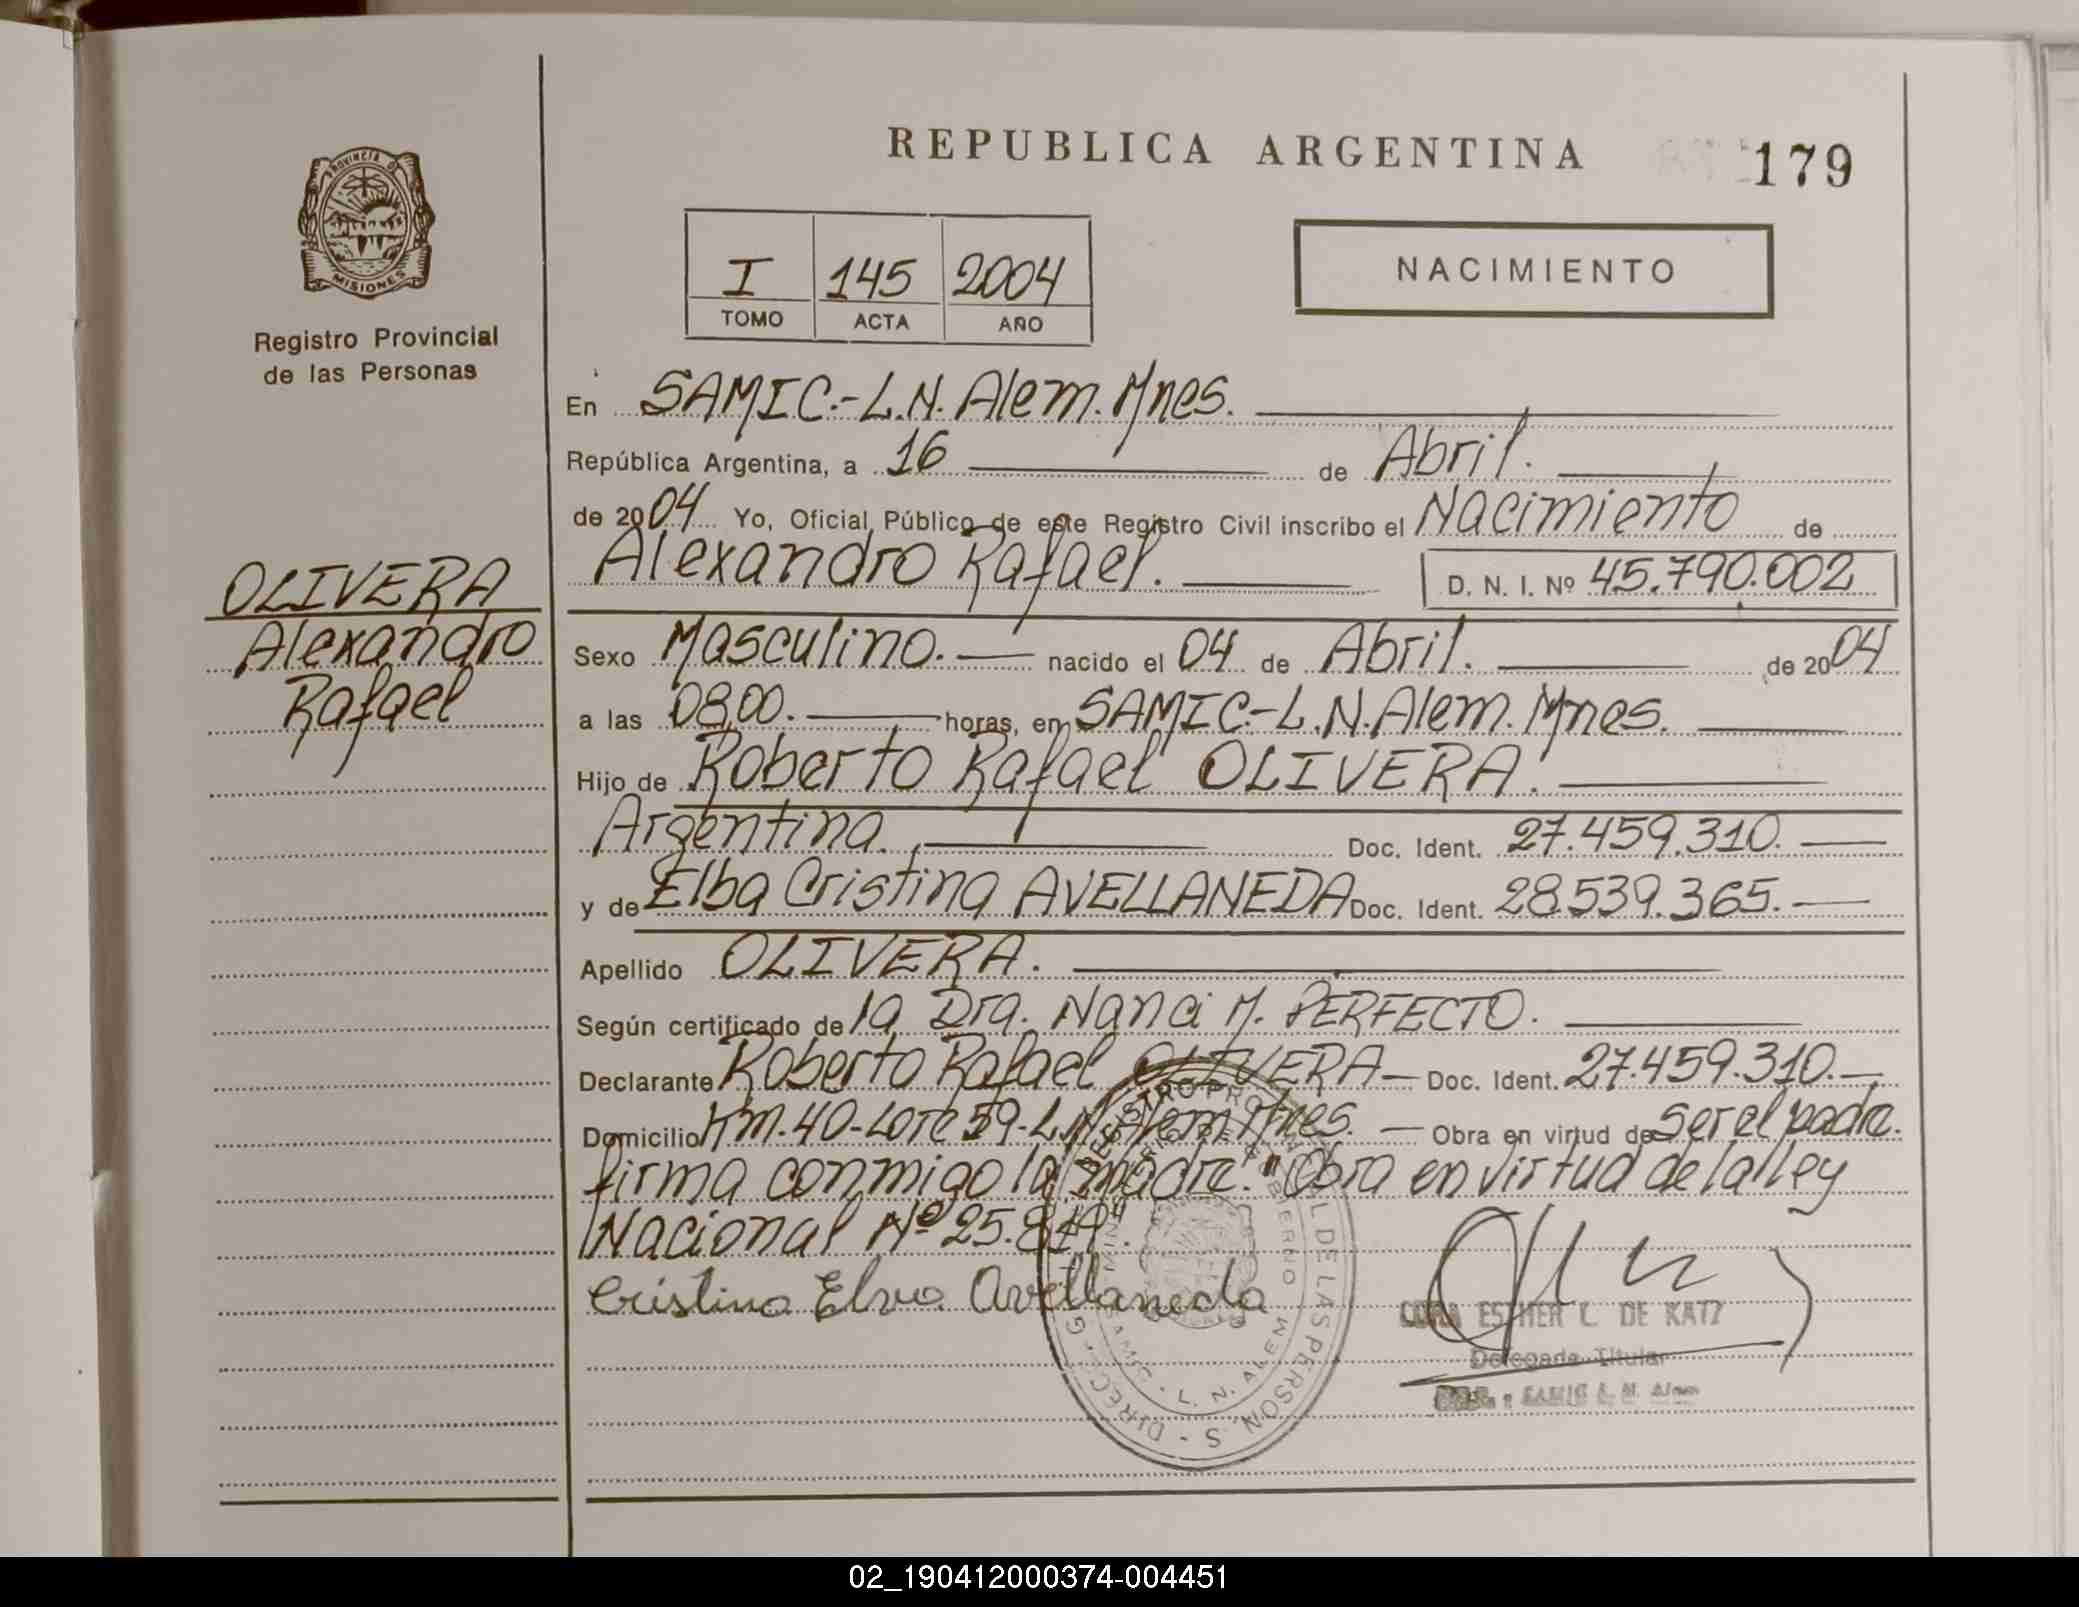 REPUBLICA ARGENTINA
179
PROVINCIA DE
MISIONES
Registro Provincial
de las Personas
I 145 2004
TOMO ACTA AÑO
NACIMIENTO
En SAMIC.-L.N. Alem. Mnes.
República Argentina, a 16 de Abril.
de 2004 Yo, Oficial Público de este Registro Civil inscribo el Nacimiento de
Alexandro Rafael. D. N. I. Nº 45.790.002
OLIVERA
Alexandro
Rafael
Sexo Masculino. nacido el 04 de Abril. de 2004
a las 08,00. horas, en SAMIC.-L.N. Alem. Mnes.
Hijo de Roberto Rafael OLIVERA.
Argentina. Doc. Ident. 27.459.310.
y de Elba Cristina AVELLANEDA Doc. Ident. 28.539.365.
Apellido OLIVERA.
Según certificado de la Dra. Nanci M. PERFECTO.
Declarante Roberto Rafael OLIVERA Doc. Ident. 27.459.310.
Domicilio Km.40-LOTE 59-L.N. Alem Mnes. Obra en virtud de ser el padre.
firma conmigo la madre. "Obra en virtud de la ley
Nacional Nº 25.819".
Cristina Elva Avellaneda
CORA ESTHER L. DE KATZ
Delegada Titular
SAMIC L. N. Alem
SAMIC - L. N. ALEM
02_190412000374-004451